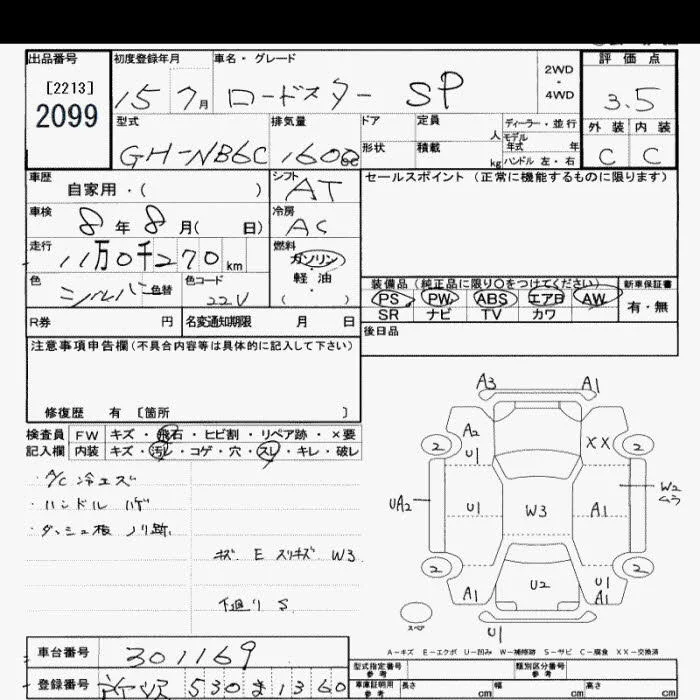 出品番号 初度登録年月 車名・グレード 評価点
[2213]
2099
15 7月 ロードスター SP
2WD
・
4WD
3.5
型式 排気量 ドア 定員 人 ディーラー・並行
モデル年式 年
外装 内装
GH-NB6C 1600cc 形状 積載 kg ハンドル 左・右
C C
車歴 自家用・( ) シフト AT セールスポイント (正常に機能するものに限ります)
車検 8年8月( 日) 冷房 AC
走行 11万0千270km 燃料 ガソリン
軽油
( )
色 シルバー 色替 色コード 22V
装備品 (純正品に限り○をつけてください) 新車保証書
PS PW ABS エアB AW 有・無
SR ナビ TV カワ
R券 円 名変通知期限 月 日 後日品
注意事項申告欄(不具合内容等は具体的に記入して下さい)
修復歴 有 [箇所 ]
検査員 FW キズ・飛石・ヒビ割・リペア跡・×要
記入欄 内装 キズ・汚レ・コゲ・穴・スレ・キレ・破レ
・A/C冷エズ
・ハンドル ハゲ
・ダッシュ板 ノリ跡
キズ E スリキズ W3
下廻り S
A3 A1
A2
U1
XX
2 2
UA2 U1 W3 A1 W2
ムラ
2 2
A1 U2 U1
A1
スペア
U1
A−キズ E−エクボ U−凹み W−補修跡 S−サビ C−腐食 XX−交換済
車台番号 301169
型式指定番号
参考
類別区分番号
参考
登録番号 530 ま 1360
車庫証明用
参考
長さ cm 幅 cm 高さ cm